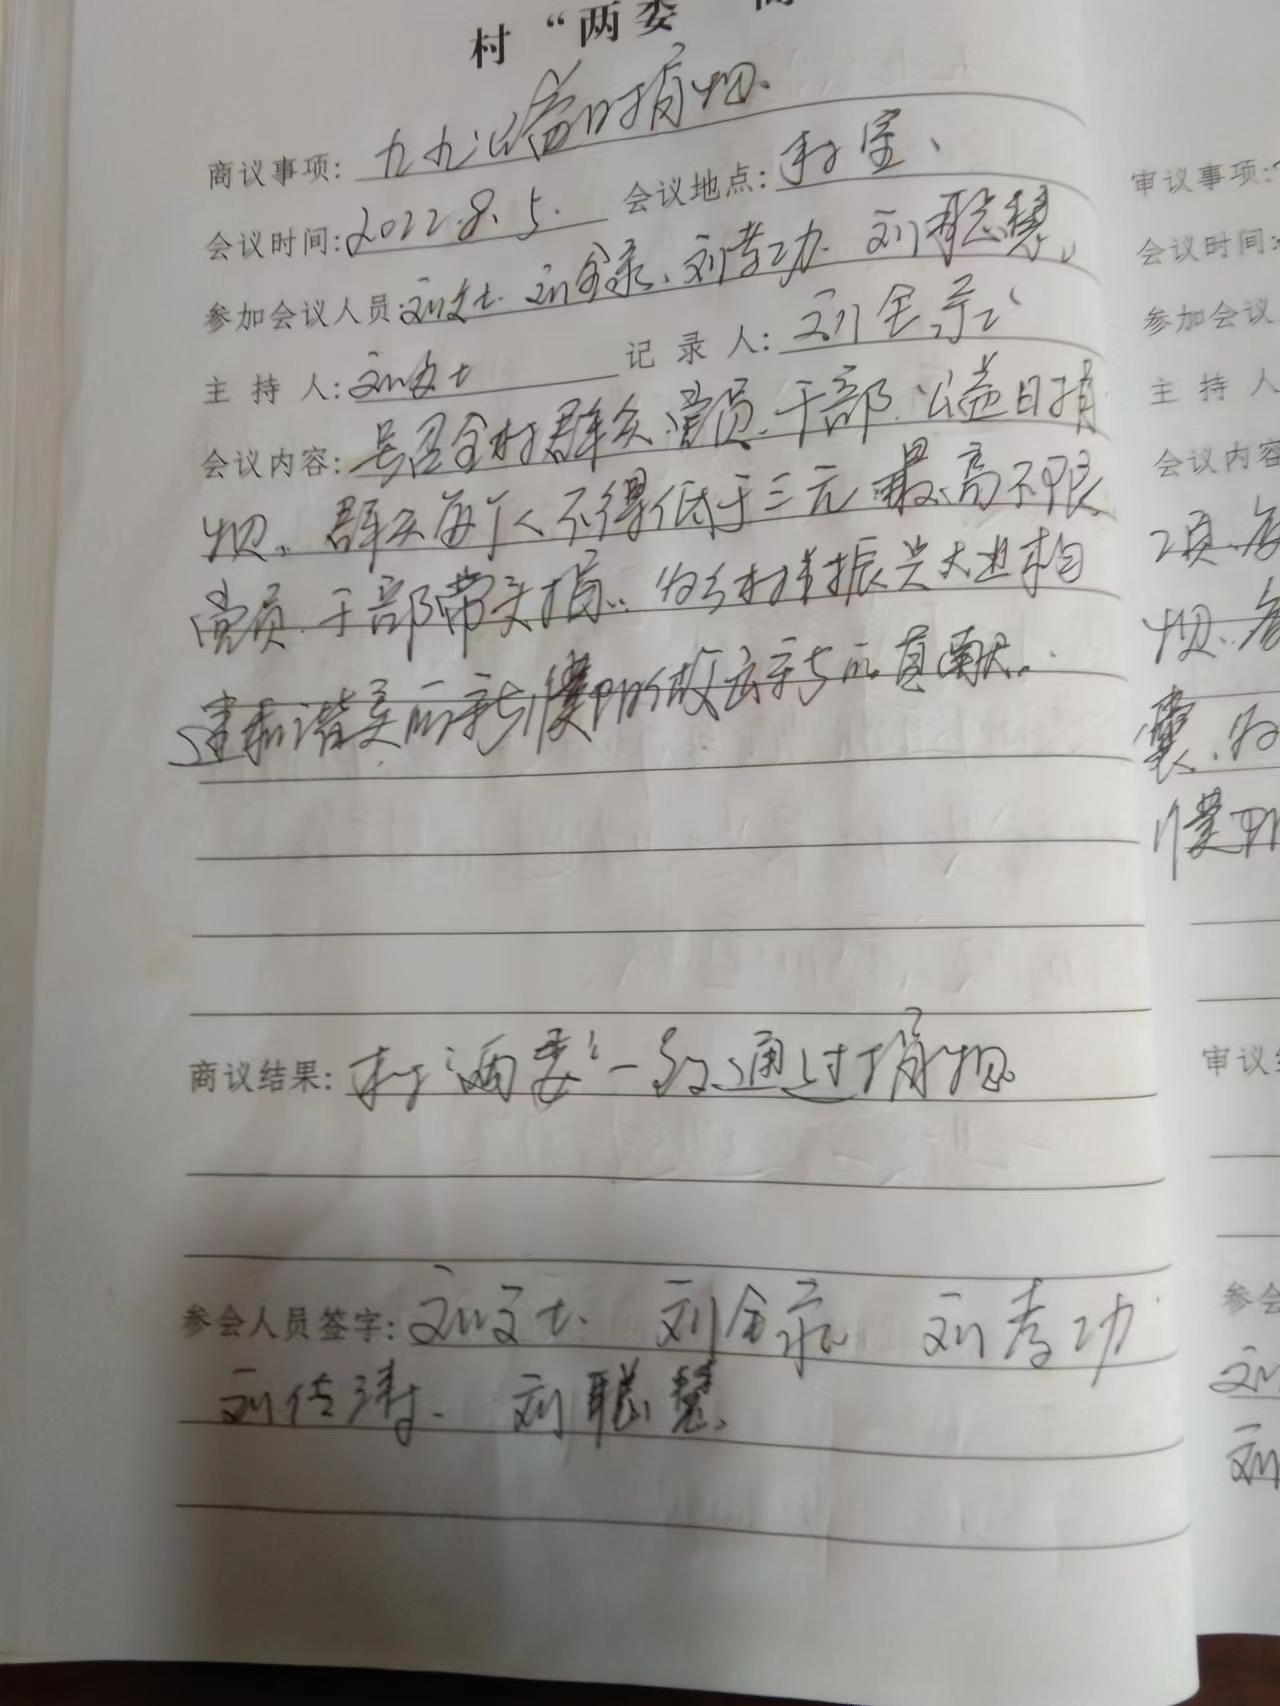 村“两委
商议事项: 九九公益日捐款.
会议时间: 2022.8.5. 会议地点: 村室、
参加会议人员: 刘文士. 刘全录、刘孝功. 刘聪慧、
主 持 人: 刘文士 记 录 人: 刘全录
会议内容: 号召全村群众.党员.干部.公益日捐
款。群众每个人不得低于三元.最高不限
党员.干部带头捐.. 为乡村振兴大业构
建和谐美丽新
做出新的贡献。
商议结果: 村“两委”一致通过捐款。
参会人员签字: 刘文士. 刘全录 刘孝功
刘传涛. 刘聪慧.
审议事项:
会议时间:
参加会议
主 持 人
会议内容
项.
款.
审议
参会
刘
刘